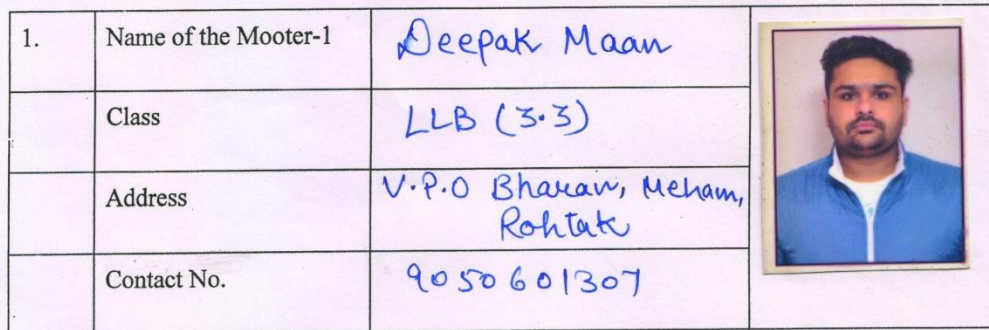 1. Name of the Mooter-1 Deepak Maan
Class LLB (3.3)
Address V.P.O Bharan, Meham,
Rohtak
Contact No. 9050601307